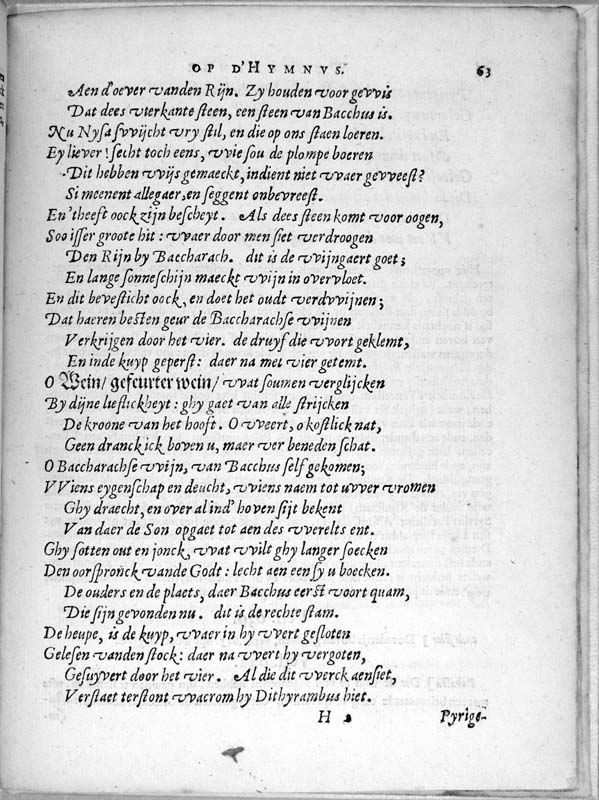 OP D'HYMNVS. 63
Aen d'oever vanden Rijn. Zy houden voor gevvis
Dat dees vierkante steen, een steen van Bacchus is.
Nu Nysa svvijcht vry stil, en die op ons staen loeren.
Ey liever! secht toch eens, vvie sou de plompe boeren
Dit hebben vvijs gemaeckt, indient niet vvaer gevveest?
Si meenent allegaer, en seggent onbevreest.
En 'theeft oock zijn bescheyt. Als dees steen komt voor oogen,
Soo isser groote hit: vvaer door men siet verdroogen
Den Rijn by Baccharach. dit is de vvijngaert goet;
En lange sonneschijn maeckt vvijn in overvloet.
En dit bevesticht oock, en doet het oudt verdvvijnen;
Dat haeren besten geur de Baccharachse vvijnen
Verkrijgen door het vier. de druyf die vvort geklemt,
En inde kuyp geperst: daer na met vier getemt.
O Wein/ gefeurter wein/ vvat soumen verglijcken
By dijne lieflickheyt: ghy gaet van alle strijcken
De kroone van het hooft. O vveert, o kostlick nat,
Geen dranck ick boven u, maer ver beneden schat.
O Baccharachse vvijn, van Bacchus self gekomen;
VViens eygenschap en deucht, vviens naem tot uvver vromen
Ghy draecht, en over al ind' hoven sijt bekent
Van daer de Son opgaet tot aen des vverelts ent.
Ghy sotten out en jonck, vvat vvilt ghy langer soecken
Den oorspronck vande Godt: lecht aen een sy u boecken.
De ouders en de plaets, daer Bacchus eerst voort quam,
Die sijn gevonden nu. dit is de rechte stam.
De heupe, is de kuyp, vvaer in hy vvert gesloten
Gelesen vanden stock: daer na vvert hy vergoten,
Gesuyvert door het vier. Al die dit vverck aensiet,
Verstaet terstont vvacrom hy Dithyrambus hiet.
H 2 Pyrige-